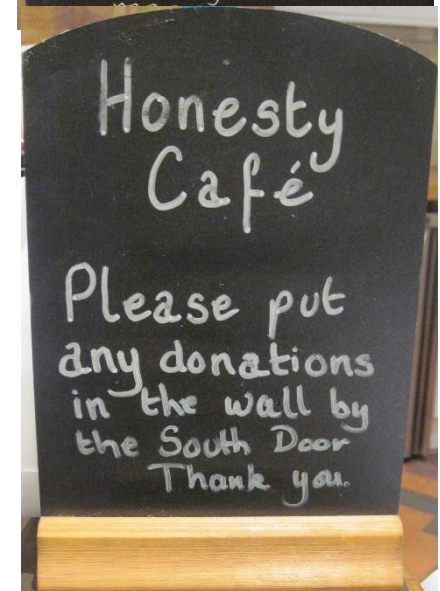 Honesty
Café
Please put
any donations
in the wall by
the South Door
Thank you.